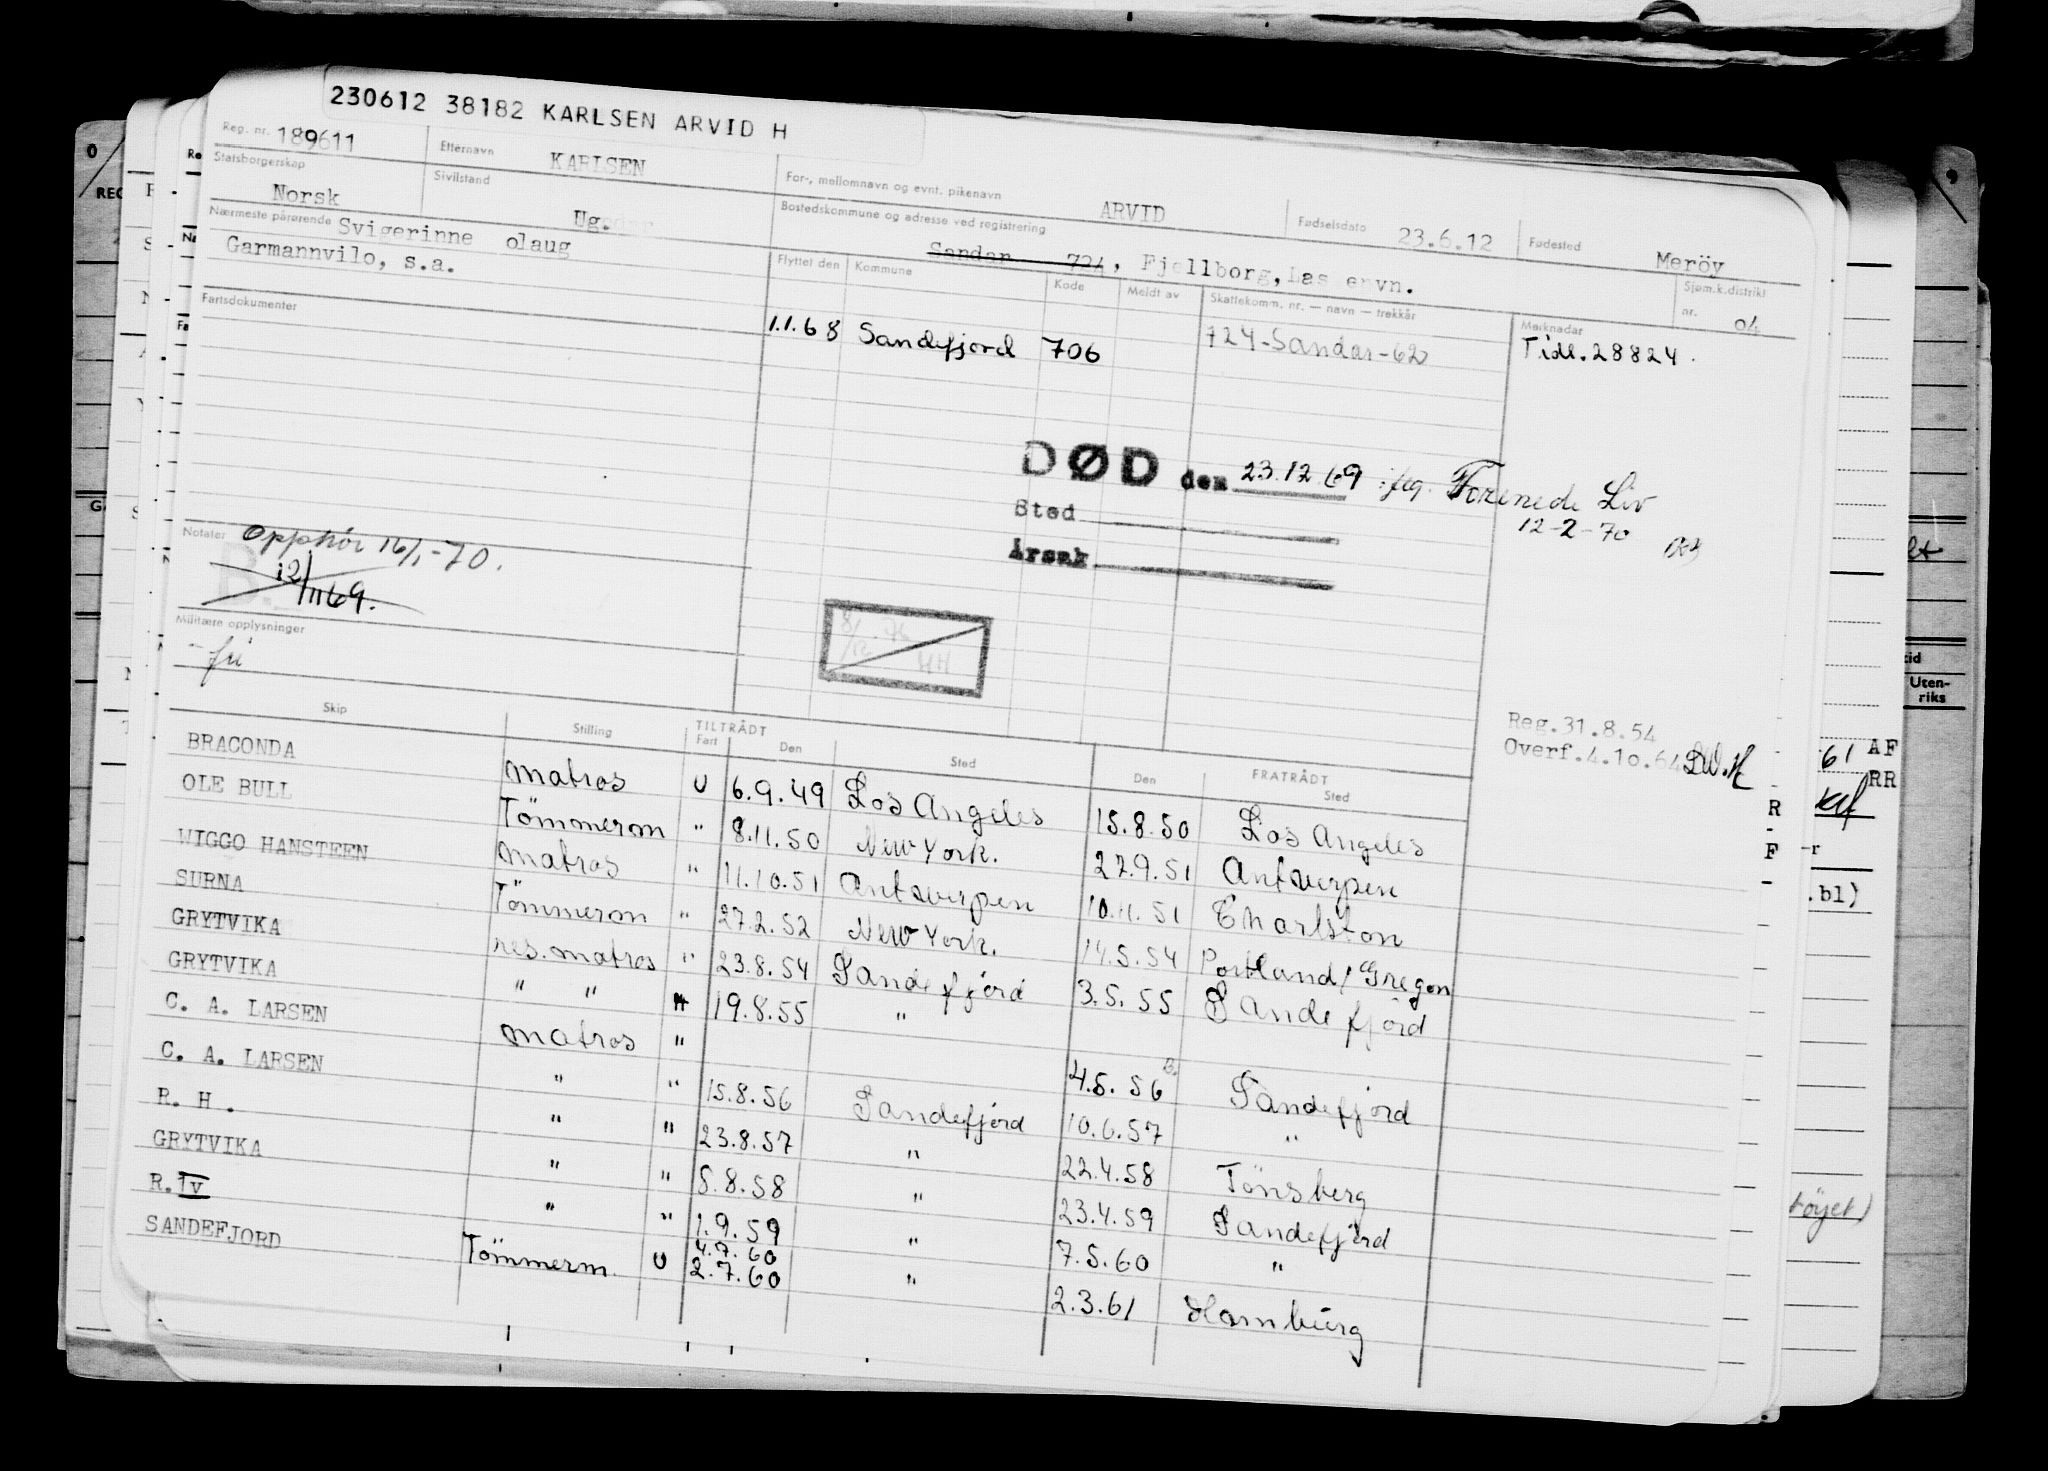 230612 38182 KARLSEN ARVID H
Reg. nr. 189611 Etternavn KARLSEN For-, mellomnavn og evnt. pikenavn ARVID Fødselsdato 23.6.12 Fødested Meröy
Statsborgerskap Norsk Sivilstand Ug. Bostedskommune og adresse ved registrering Sandar 724, Fjellborg, Sjøm.k.distrikt nr. 04
Nærmeste pårørende Svigerinne olaug
Garmannvilo, s.a.
Flyttet den Kommune Kode Meldt av Skattekomm. nr. — navn — trekkår Merknader
Fartsdokumenter
1.1.68 Sandefjord 706 724-Sandar-62 Tidl. 28824.
DØD den 23.12.69 Forenede Liv
12-2-70
Sted
Årsak
Notater Opphör 16/1-70.
12/1169.
Militære opplysninger
Reg.31.8.54
Overf.4.10.64
Skip Stilling TILTRÅDT Fart Den Sted Den FRATRÅDT Sted
BRACONDA matros U 6.9.49 Los Angeles 15.8.50 Los Angeles
OLE BULL Tömmerm " 8.11.50 New York. 22.9.51 Antwerpen
WIGGO HANSTEEN matros " 11.10.51 Antwerpen 10.11.51 Charlston
SURNA Tömmerm " 27.2.52 New York. 14.5.54 Portland/Oregon
GRYTVIKA res. matros " 23.8.54 Sandefjord 3.5.55 Sandefjord
GRYTVIKA " " 19.8.55 "
C. A. LARSEN matros " 4.5.56 Sandefjord
C. A. LARSEN " " 15.8.56 Sandefjord 10.6.57 "
R. H. " " 23.8.57 " 22.4.58 Tönsberg
GRYTVIKA " " 8.8.58 " 23.4.59 Sandefjord
R.IV " " 1.9.59 " 7.5.60 "
4.7.60
SANDEFJORD Tömmerm. U 2.7.60 " 2.3.61 Hamburg
Uten-
riks
61 AF
RR
R
F
.bl)